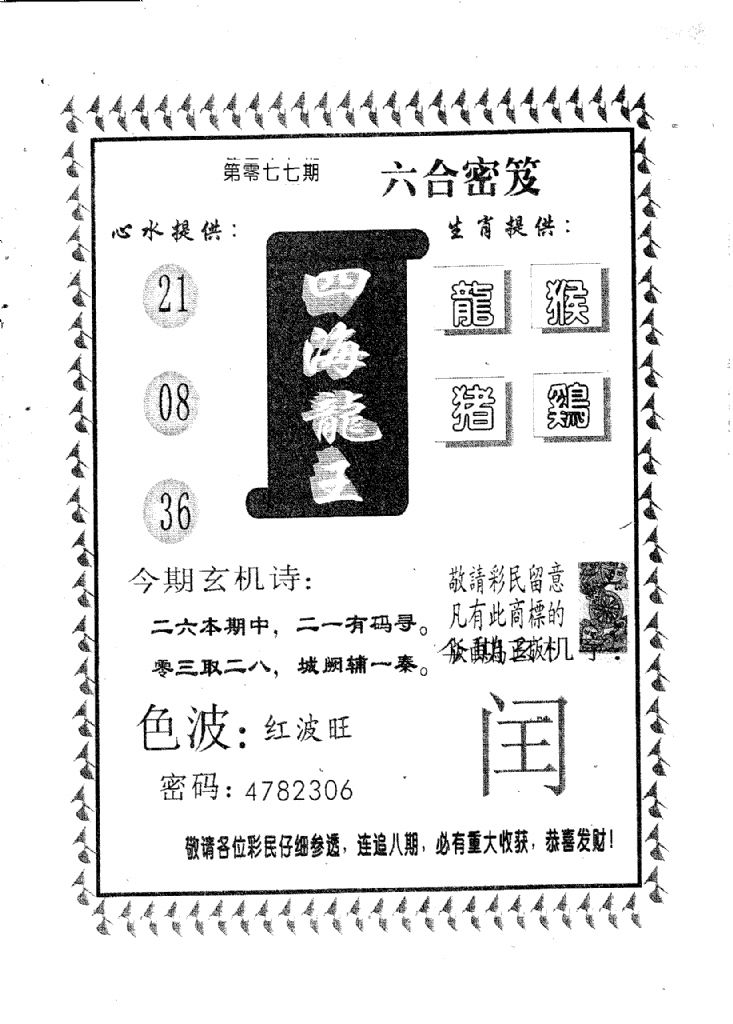 第零七七期
六合密笈
心水提供：
生肖提供：
21
08
36
四海龍王
龍
猴
猪
鷄
今期玄机诗：
二六本期中，二一有码寻。
零三取二八，城阙辅一秦。
敬請彩民留意
凡有此商標的
版面為正版
今期玄机字：
色波：红波旺
闰
密码：4782306
敬请各位彩民仔细参透，连追八期，必有重大收获，恭喜发财！